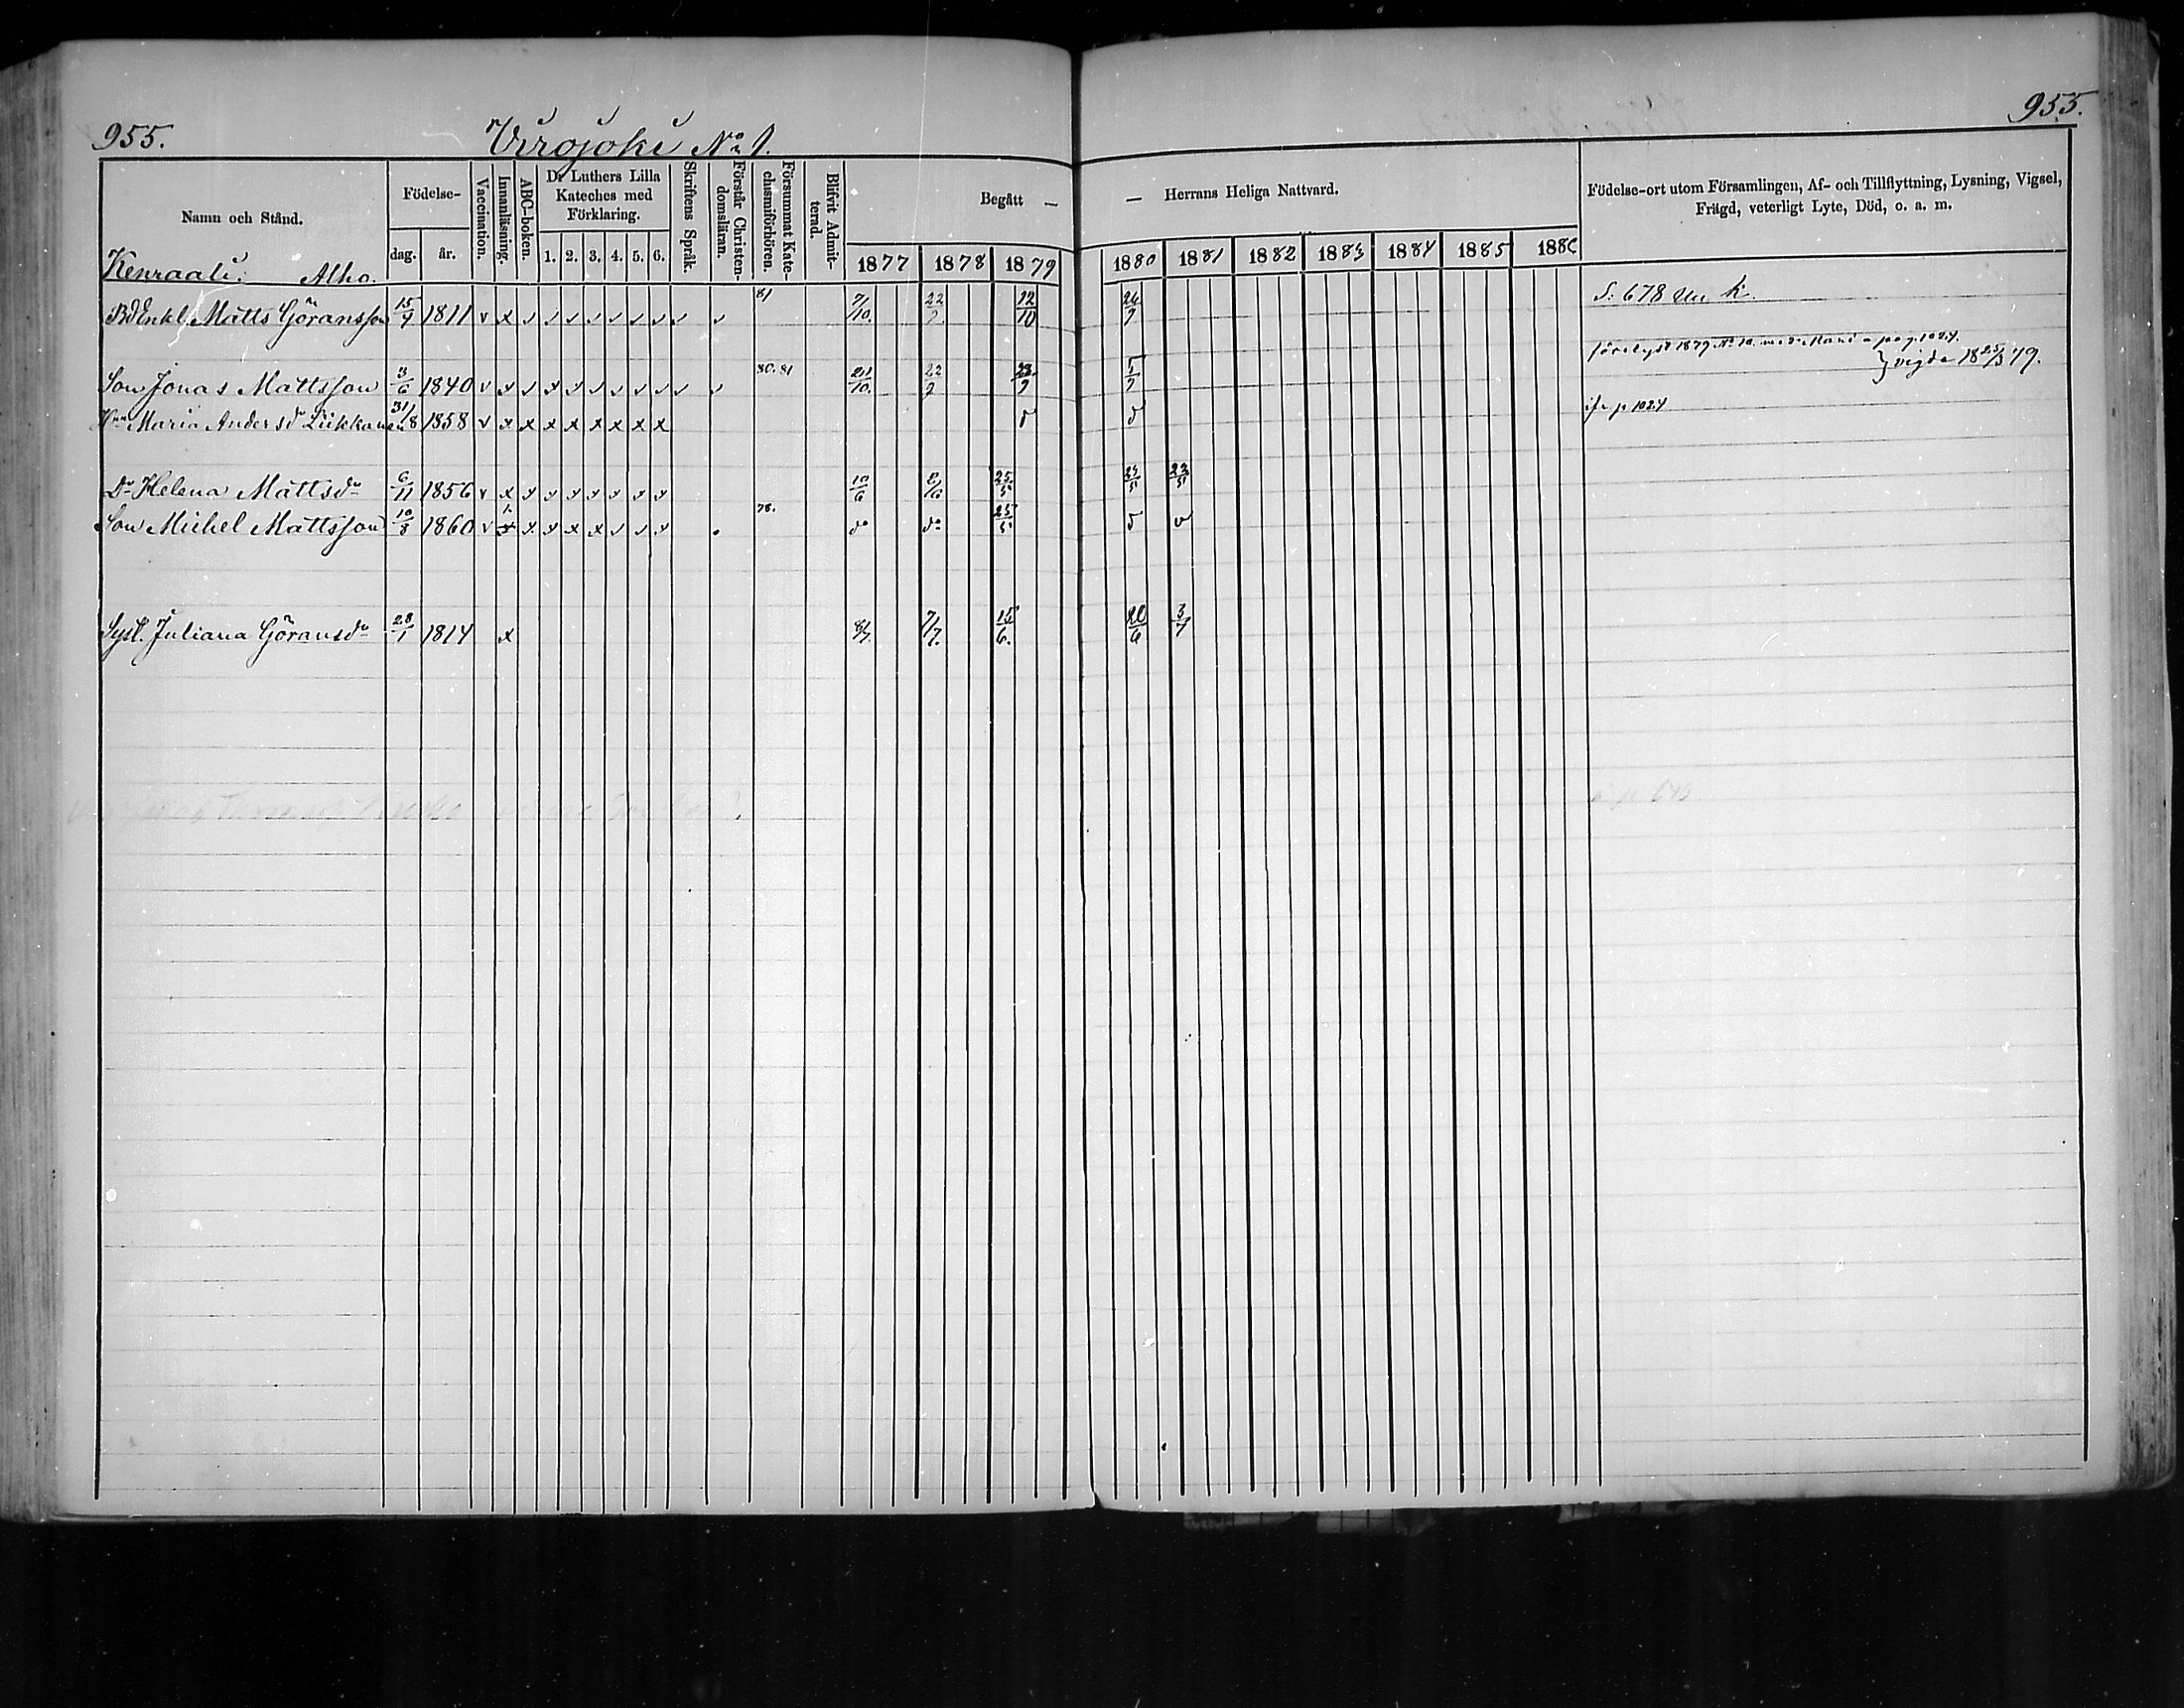 955. 955.
Urrojoki No 1.
Namn och Stånd. Födelse- dag. år. Vaccination. Innanläsning. ABC-boken. Dr Luthers Lilla Kateches med Förklaring. 1. 2. 3. 4. 5. 6. Skriftens Språk. Förstår Christen-domsläran. Försummat Kate-chismiförhören. Blifvit Admit-terad. Begått — — Herrans Heliga Nattvard. Födelse-ort utom Församlingen, Af- och Tillflyttning, Lysning, Vigsel, Frägd, veterligt Lyte, Död, o. a. m.
1877 1878 1879 1880 1881 1882 1883 1884 1885 1886
Kenraali: Alho.
Bd Enkl. Matts Göransson 15/7 1811 v x 81 7/10. 22/9 12/10 26/9 S: 678 K.
förelyst 1879 No 10. pag. 1024.
Son Jonas Mattsson 3/6 1840 v x 80. 81 21/10. 22/9 5/9 vigde 18 25/3 79.
Hn Maria Andersdr Liikkanen 31/8 1858 v x x x x x x x x p 1024
Dr Helena Mattsdr 6/11 1856 v x 10/6 25/5 23/5 22/5
Son Michel Mattsson 10/8 1860 v 78. do do 25/5
Syst. Juliana Göransdr 28/1 1814 x 8/7. 7/7. 15/6. 20/6 3/7